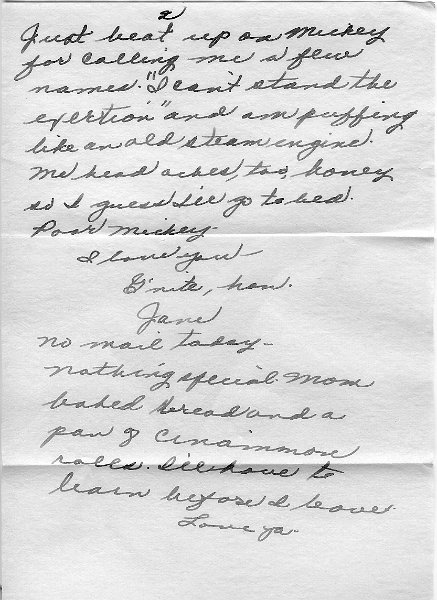 2
Just beat up on Mickey
for calling me a few
names. "I can't stand the
exertion" and am puffing
like an old steam engine.
Me head aches, too, honey
so I guess I'll go to bed.
Poor Mickey-
I love you-
G'nite, hon.
Jane
No mail today-
nothing special. Mom
baked bread and a
pan of cinnaimmon
rolls. I'll have to
learn before I leave.
Love ya.